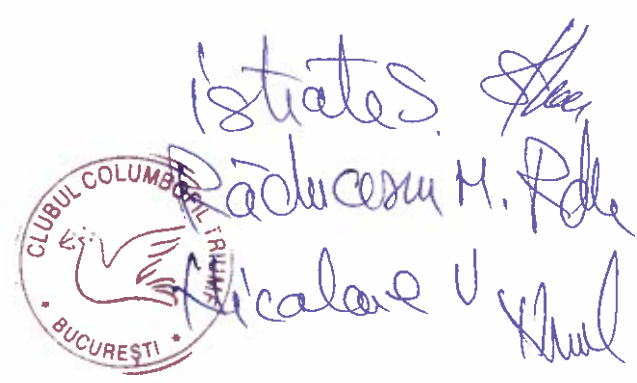 Istrate S.
Răducescu M.
Nicolae V
CLUBUL COLUMBOFIL TRIUMF
* BUCUREȘTI *